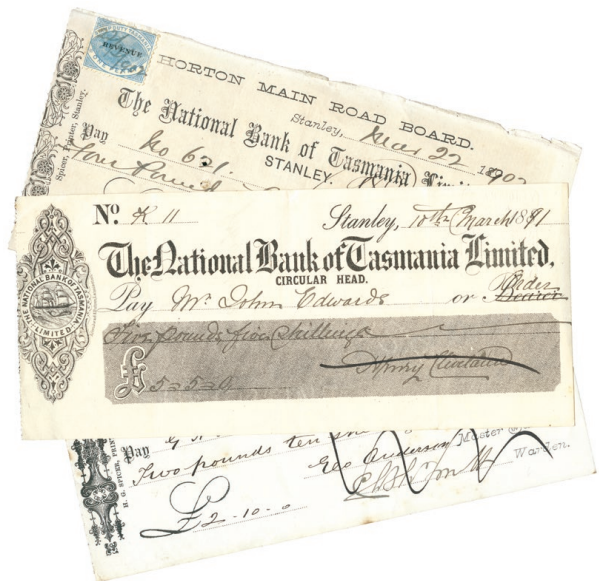 REVENUE
HORTON MAIN ROAD BOARD.
Stanley,
22 1902
The National Bank of Tasmania
STANLEY.
Pay No 621.
Four Pound
Spicer, Printer, Stanley.
No. K 11
Stanley, 10th March 1891
The National Bank of Tasmania Limited,
CIRCULAR HEAD.
Pay Mr. John Edwards or Bearer
Order
Five Pounds five Shillings
£5-5-0
Henry
THE NATIONAL BANK OF TASMANIA
LIMITED
Pay
Two pounds ten
Geo Anderson
Master
Warden.
£2-10-0
H. G. SPICER,